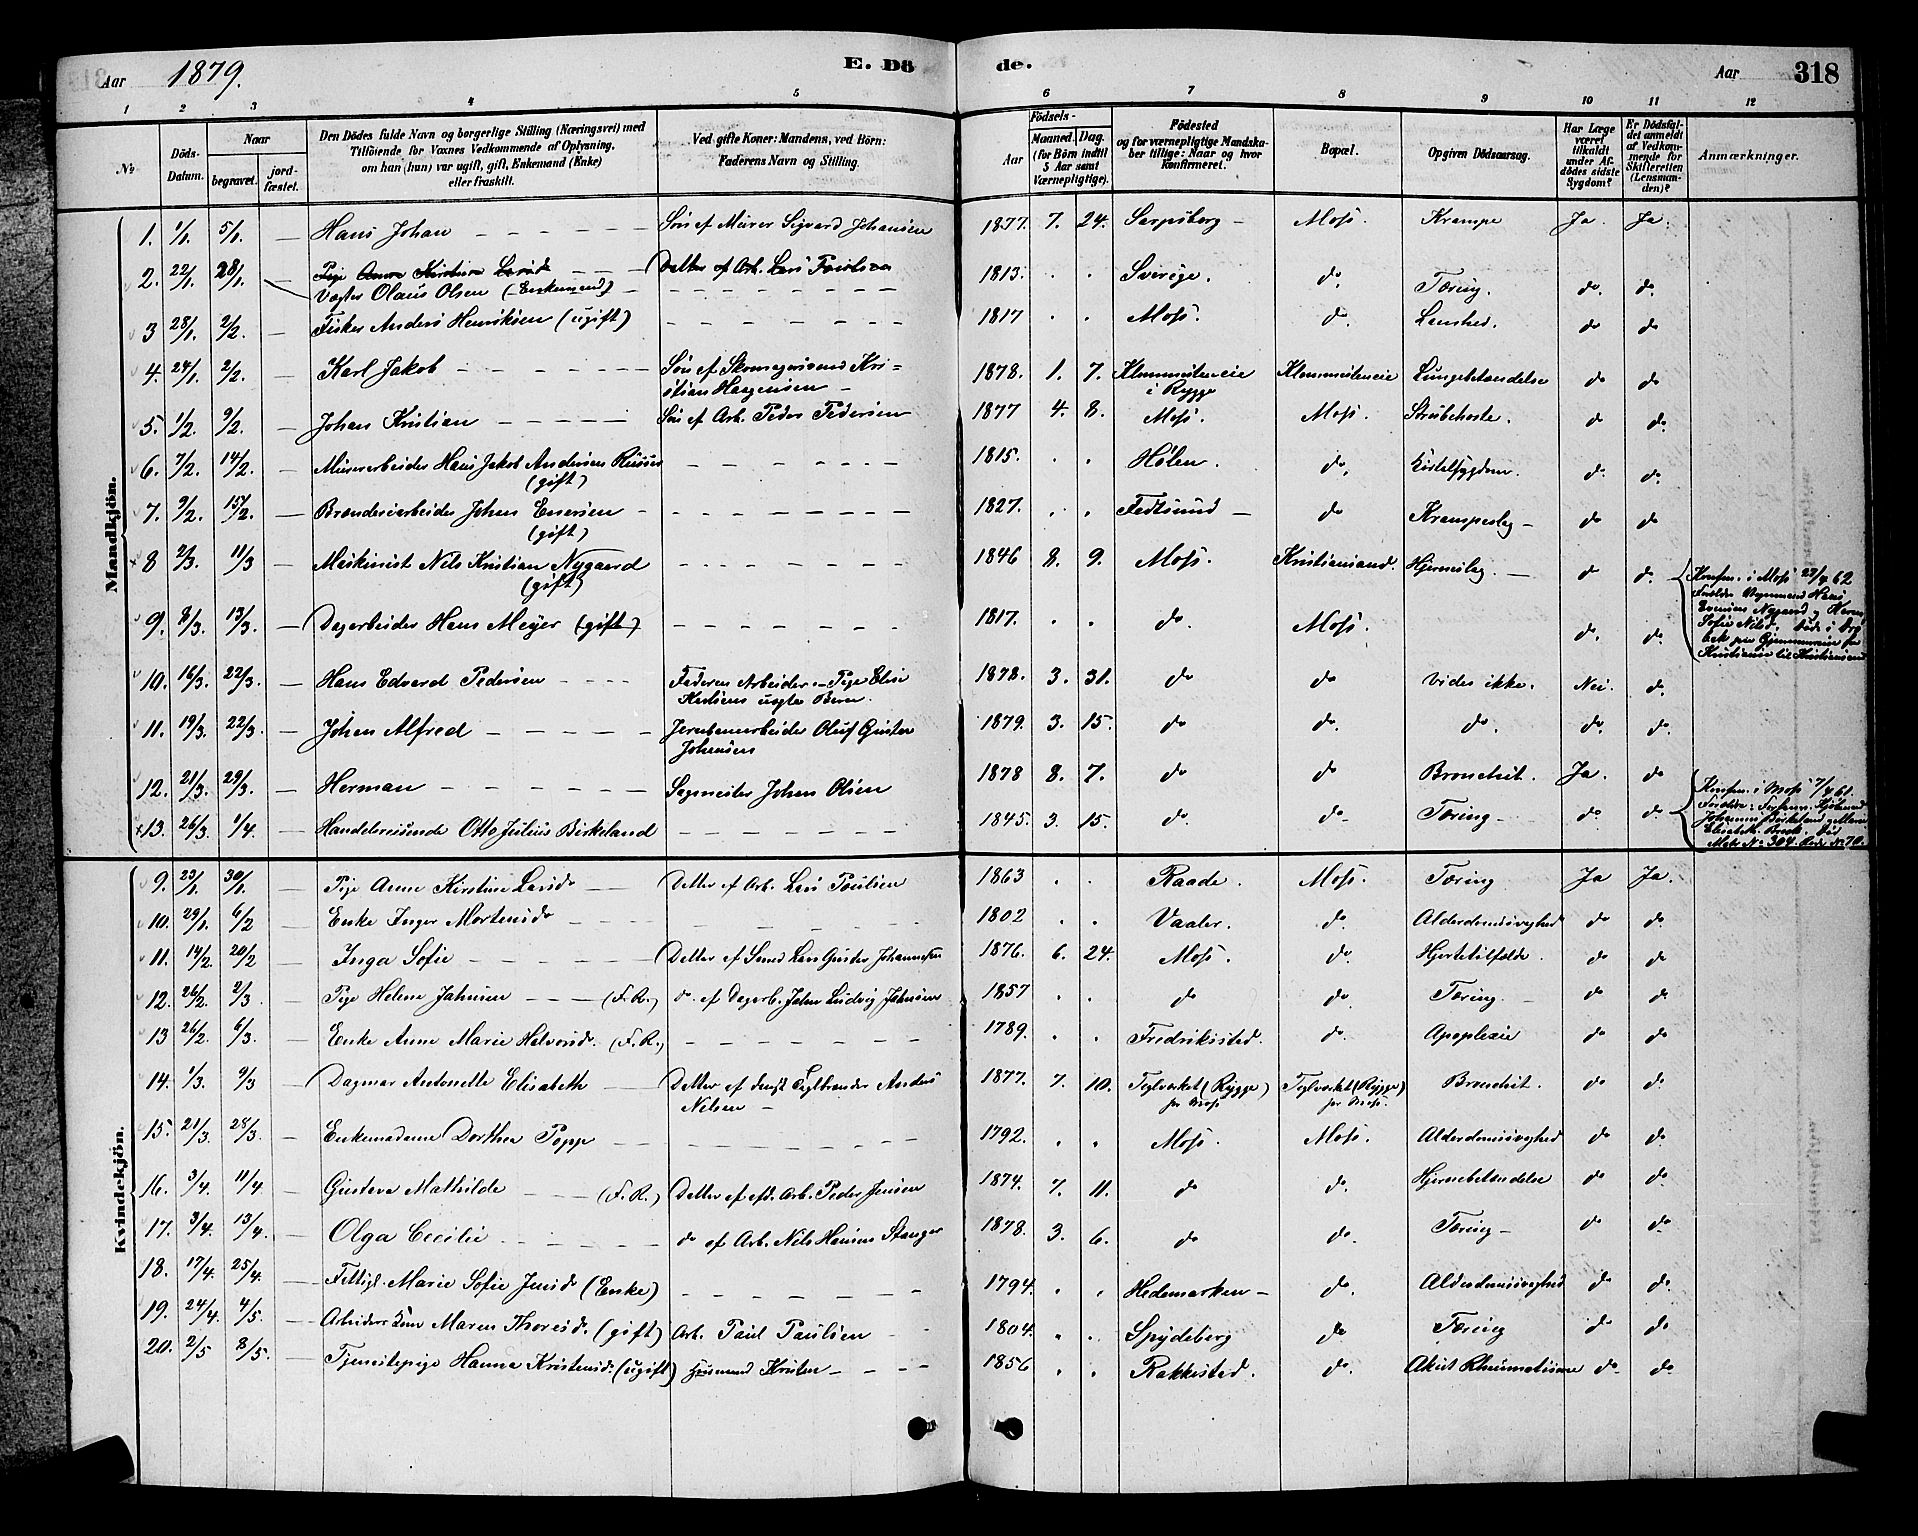 Aar 1879. E. Dö de. Aar 318
1 2 3 4 5 6 7 8 9 10 11 12
No. Döds-Datum. Naar begravet. jordfæstet. Den Dödes fulde Navn og borgerlige Stilling (Næringsvei) med Tilföiende for Voxnes Vedkommende af Oplysning, om han (hun) var ugift, gift, Enkemand (Enke) eller fraskilt. Ved gifte Koner: Mandens, ved Börn: Faderens Navn og Stilling. Födsels- Aar Maaned. Dag. (for Börn indtil 5 Aar samt Værnepligtige). Födested og for værnepligtige Mandskaber tillige: Naar og hvor Konfirmeret. Bopæl. Opgiven Dödsaarsag. Har Læge været tilkaldt under Afdödes sidste Sygdom? Er Dödsfaldet anmeldt af Vedkommende for Skifteretten (Lensmanden)? Anmærkninger.
Mandkjön.
1. 1/1. 5/1. — Hans Johan — Sön af Murer Sigvard Johansen 1877. 7. 24. Sarpsborg — Moss. Krampe Ja. Ja.
2. 22/1. 28/1. Pige Anne Kirstine Larsd. — Datter af Arb. Lars Poulsen 1813. Sverige. do. Tæring. do. do.
Vægter Olaus Olsen (Enkemand) —
3 28/1. 2/2. — Fisker Anders Henriksen (ugift) — 1817 Moss. do. do. do.
4. 24/1. 2/2. — Karl Jakob — Sön af Kri=
stian Hargensen — 1878. 1. 7. i Rygge Lungebetændelse do do
5. 1/2. 9/2. — Johan Kristian — Sön af Arb. Peder Pedersen 1877 4. 8. Moss. Moss. Strubehoste. do do.
6. 7/2. 14/2. — Murerarbeider Hans Jakob Andersen
(gift) — 1815. Hølen. do. Kirtelsygdom. do. do.
7. 9/2. 15/2. — Brænderiarbeider Johan Enersen —
(gift) — 1827. Fedtsund — do Krampeslag — do do
8 2/3. 11/3 — Maskinist Nils Kristian Nygaard
(gift) — 1846 8. 9. Moss. Kristiansand. Hjerneslag. — do do.
Konfm. i Moss 27/4 62
Hans
Nygaard og Maren
Sofie Nilsd. Døde i
paa Gjennemreise fra
Kristiania til Kristiansand
9. 8/3. 13/3. — Dagarbeider Hans Meyer (gift) — 1817. do. Moss. do. do.
10. 16/3. 22/3. — Hans Edvard Pedersen — Faderen Arbeider — Pige Elise
uægte Barn. 1878. 3. 31. do do Vides ikke. Nei. do.
11. 19/3. 22/3. — Johan Alfred — Jernbanearbeider Oluf Gustav
Johansen 1879. 3. 15. do do. do. do. do.
12. 21/3. 29/3. — Herman — Sagmester Johan Olsen 1878 8. 7. do do Bronchit. Ja. do
13. 26/3. 1/4. — Handelsreisende Otto Julius Birkeland — 1845. 3. 15. do. do. Tæring — do. do
Konfm. i Moss 7/4 61.
Johannes Birkeland og Maren
Elisabeth
Matr. No. 304. No. 70.
Kvindekjön.
9. 23/1. 30/1. — Pige Anne Kirstine Larsd. — Datter af Arb. Lars Poulsen 1863 Raade. Moss. Tæring Ja Ja.
10. 29/1. 6/2 — Enke Inger Mortensd. — 1802 Vaaler. do. Alderdomssvaghed do do.
11. 14/2. 20/2 — Inga Sofie — Datter af Smed Lars Gustav Johannesen 1876. 6. 24. Moss. do. Hjertetilfælde. do do
12. 26/2. 2/3. — Pige Helene Jahnsen — (F.R.) do. af Dagarb. John Ludvig Jahnsen 1857 do do. Tæring. — do do
13 26/2. 6/3. — Enke Anne Marie Halvorsd. (F.R.) — 1789. Fredriksstad. do. Apoplexie do do
14. 1/3. 9/3 — Dagmar Antonette Elisabeth — Datter af Teglbrænder Anders
Nilsen — 1877. 7. 10. Teglværket (Rygge)
pr Moss Teglværket (Rygge)
pr Moss. Bronchit. do do.
15. 21/3. 28/3. — Enkemadame Dorthea Popp — 1792. Moss. Moss. Alderdomssvaghed do do
16. 3/4. 11/4 — Gustava Mathilde — (F.R.) Datter af afd. Arb. Peder Jensen 1874. 7. 11. do do. Hjernebetændelse do do
17. 3/4. 13/4. — Olga Cecilie — do af Arb. Nils Hansen Stanger 1878. 3. 6. do do. Tæring — do do.
18. 17/4. 25/4. — Fattigl. Marie Sofie Jensd. (Enke) — 1794. Hedemarken — do. Alderdomssvaghed do do.
19. 24/4. 4/5. — Arbeiders Kone Maren Thoresd. (gift) Arb. Paul Paulsen — 1804. Spydeberg do Tæring do do
20. 2/5 8/5. — Tjenestepige Hanna Kristensd. (ugift) Husmand Kristen — 1856 Rakkestad. do. Akut Rheumatisme do. do.